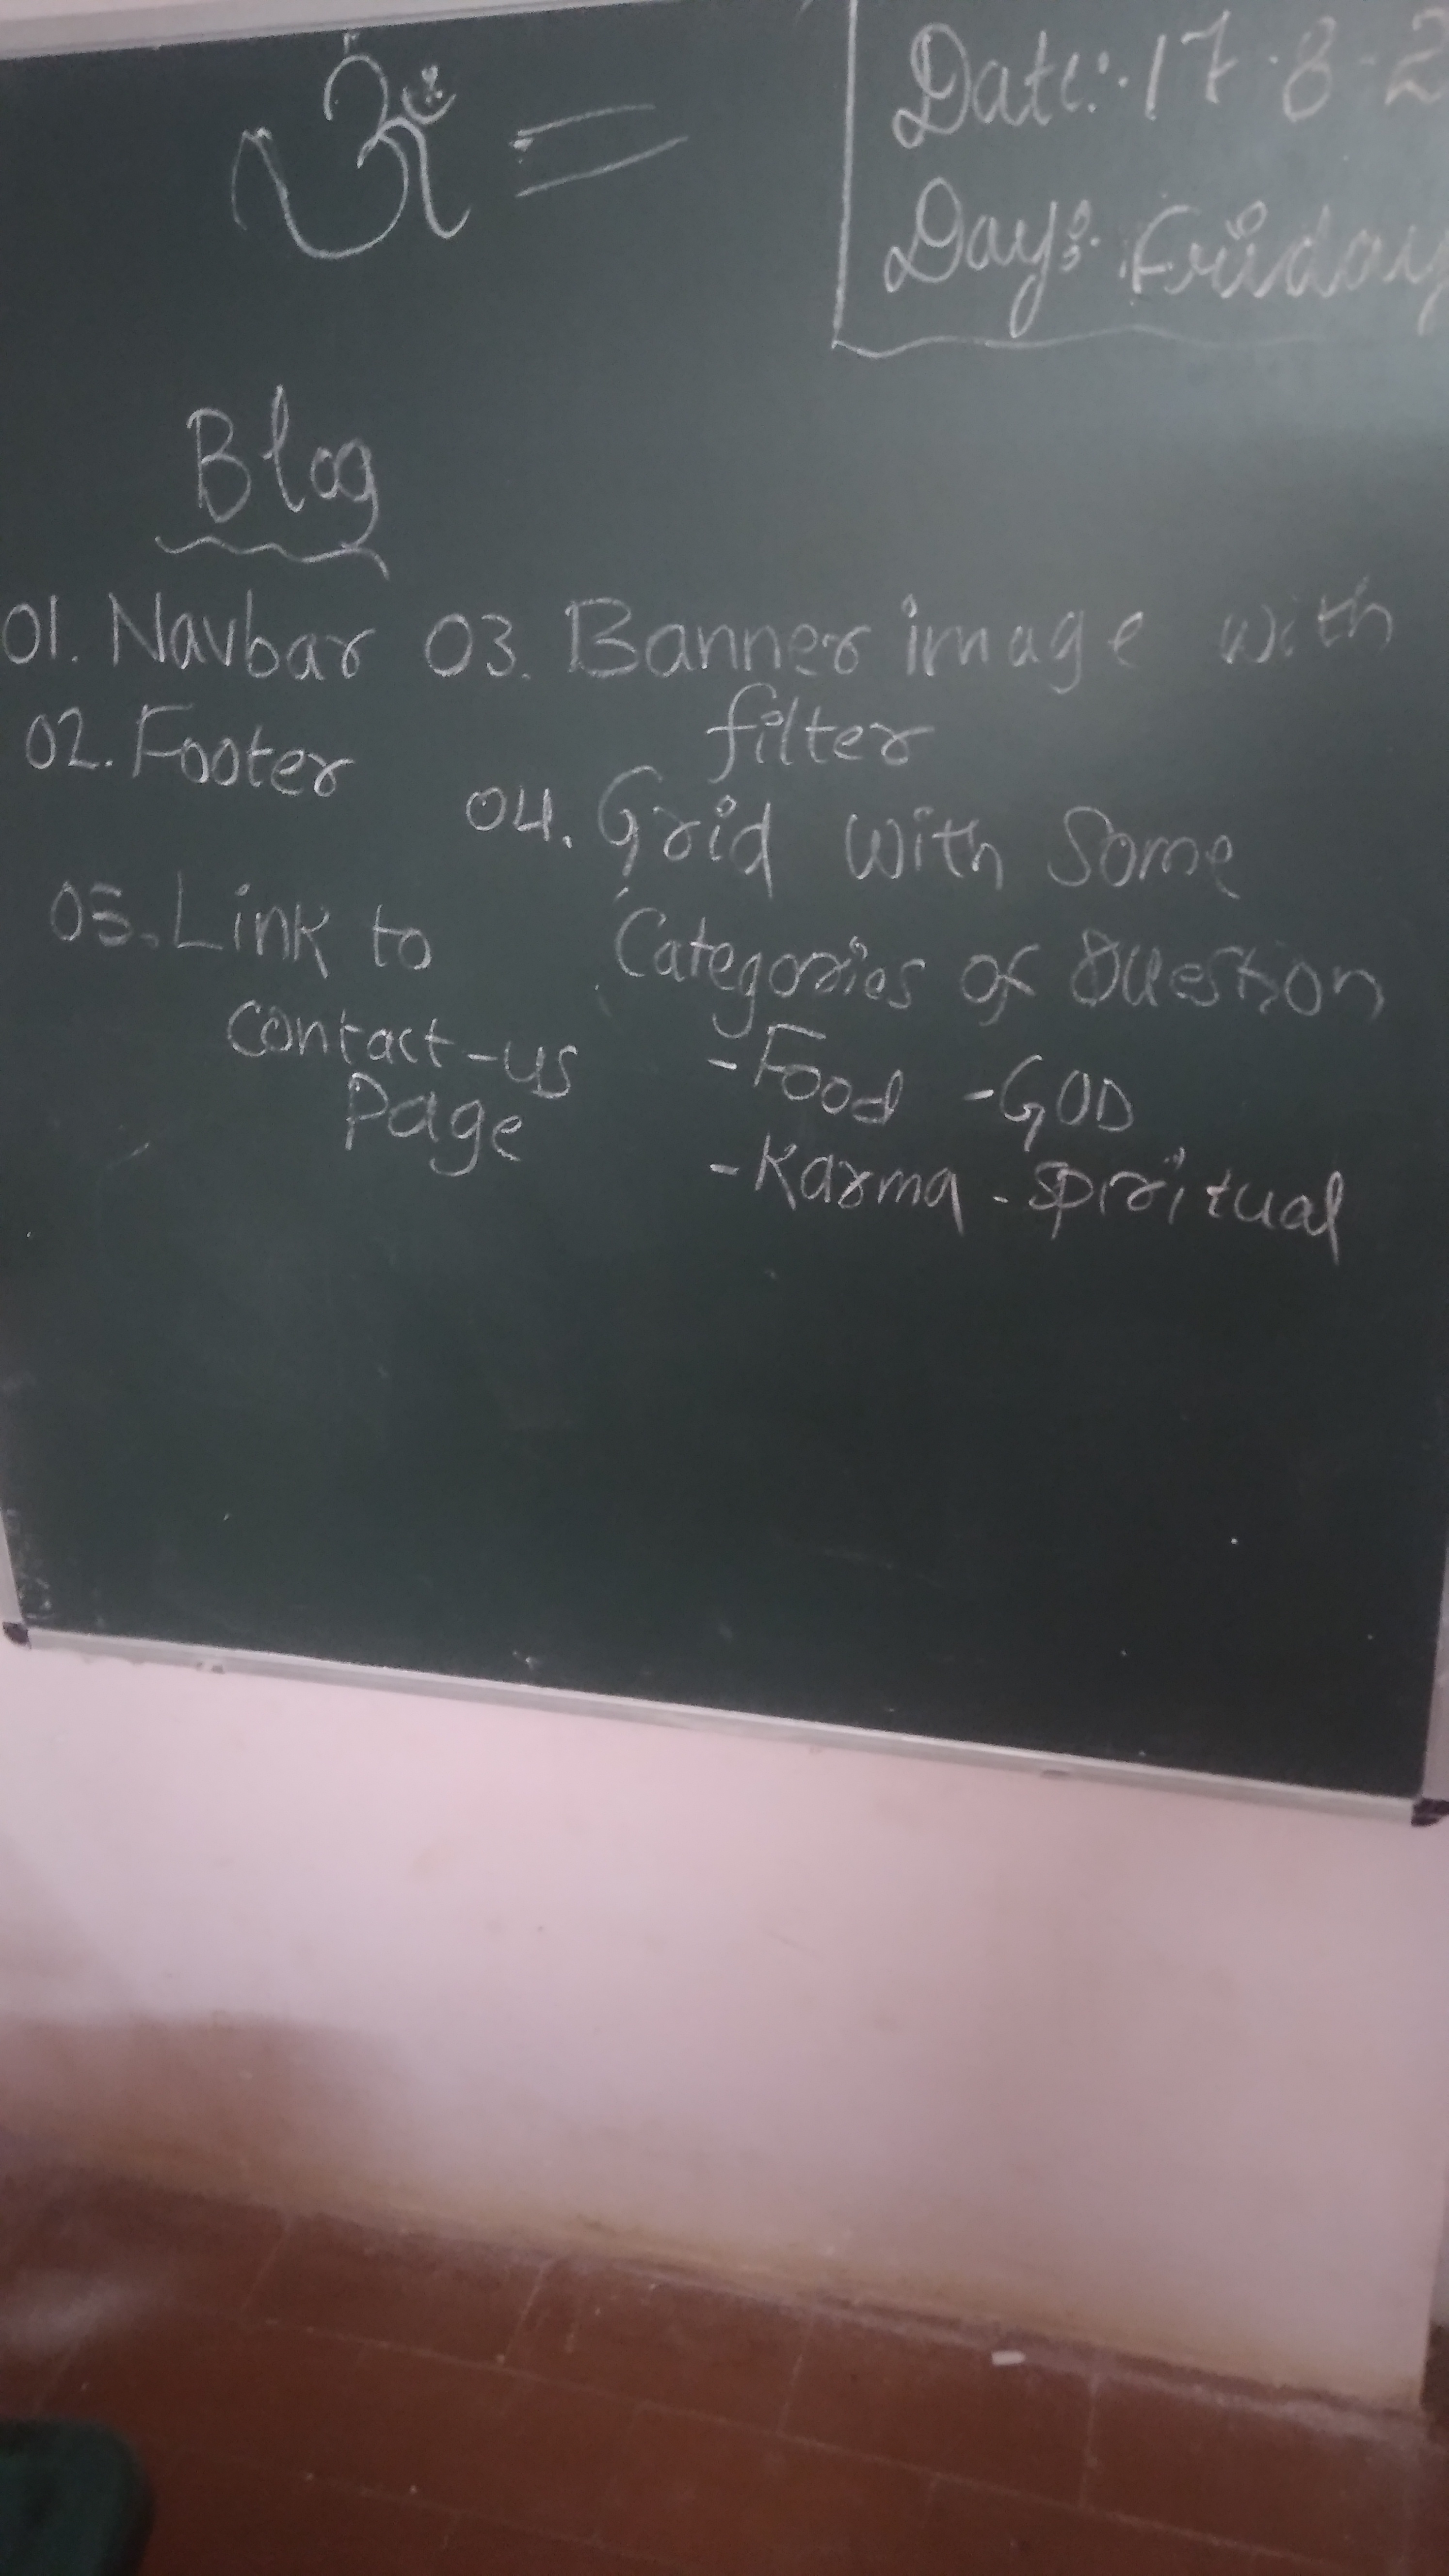 Date:- 17-8-2
Day:- Friday
Blog
01. Navbar
02. Footer
03. Banner image with
filter
04. Grid with Some
Categories of Question
- Food - GOD
- Karma - Spiritual
05. Link to
contact-us
page